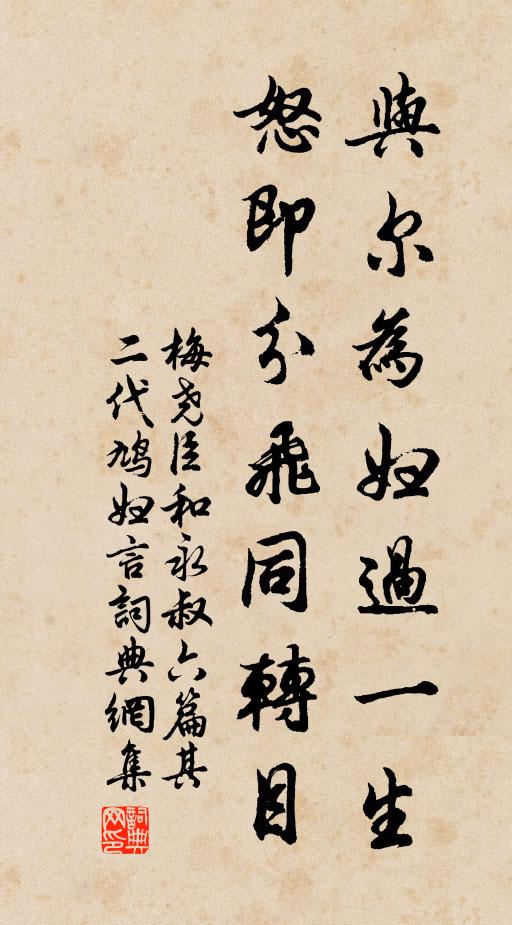 與尔為婦過一生
怒即分飛同轉目
梅堯臣和永叔六篇其
二代鳩婦言詞典網集
詞典
网印